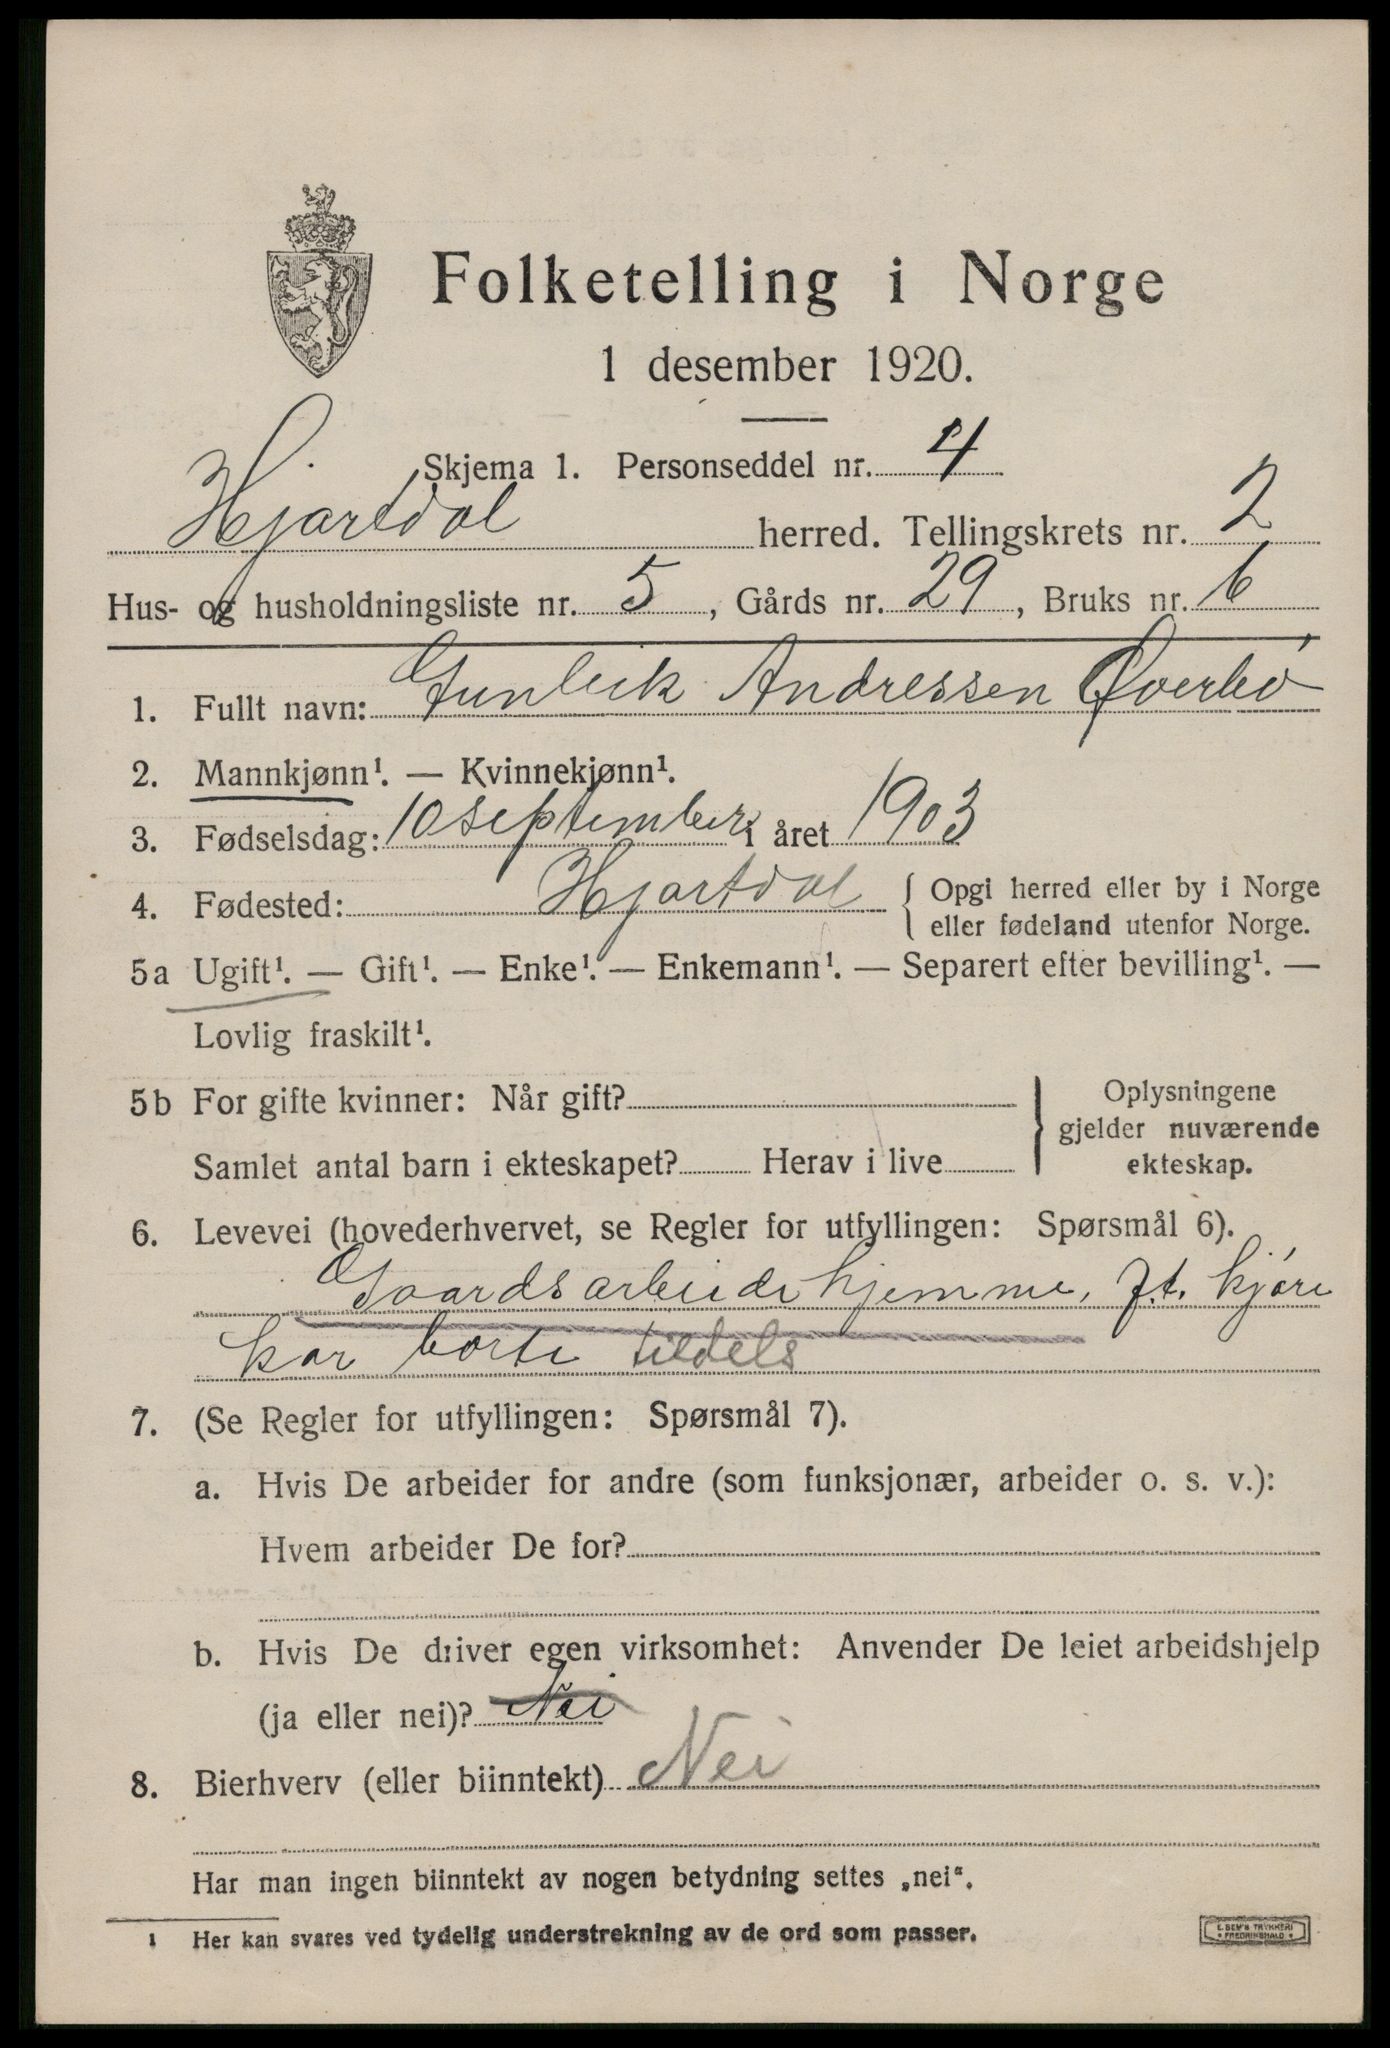 Folketelling i Norge
1 desember 1920.
Skjema 1. Personseddel nr. 4
Hjartdal herred. Tellingskrets nr. 2
Hus- og husholdningsliste nr. 5, Gårds nr. 29, Bruks nr. 6
1. Fullt navn: Gunleik Andressen Øverbø
2. Mannkjønn¹. — Kvinnekjønn¹.
3. Fødselsdag: 10 september i året 1903
4. Fødested: Hjartdal { Opgi herred eller by i Norge
eller fødeland utenfor Norge.
5a Ugift¹. — Gift¹. — Enke¹. — Enkemann¹. — Separert efter bevilling¹. —
Lovlig fraskilt¹.
5b For gifte kvinner: Når gift? } Oplysningene
gjelder nuværende
Samlet antal barn i ekteskapet? Herav i live ekteskap.
6. Levevei (hovederhvervet, se Regler for utfyllingen: Spørsmål 6).
Gaardsarbeide hjemme, f.t. kjøre
kar borte tildels
7. (Se Regler for utfyllingen: Spørsmål 7).
a. Hvis De arbeider for andre (som funksjonær, arbeider o. s. v.):
Hvem arbeider De for?
b. Hvis De driver egen virksomhet: Anvender De leiet arbeidshjelp
(ja eller nei)? Nei
8. Bierhverv (eller biinntekt) Nei
Har man ingen biinntekt av nogen betydning settes „nei“.
1 Her kan svares ved tydelig understrekning av de ord som passer.
E. SEM'S TRYKKERI
• FREDRIKSHALD •